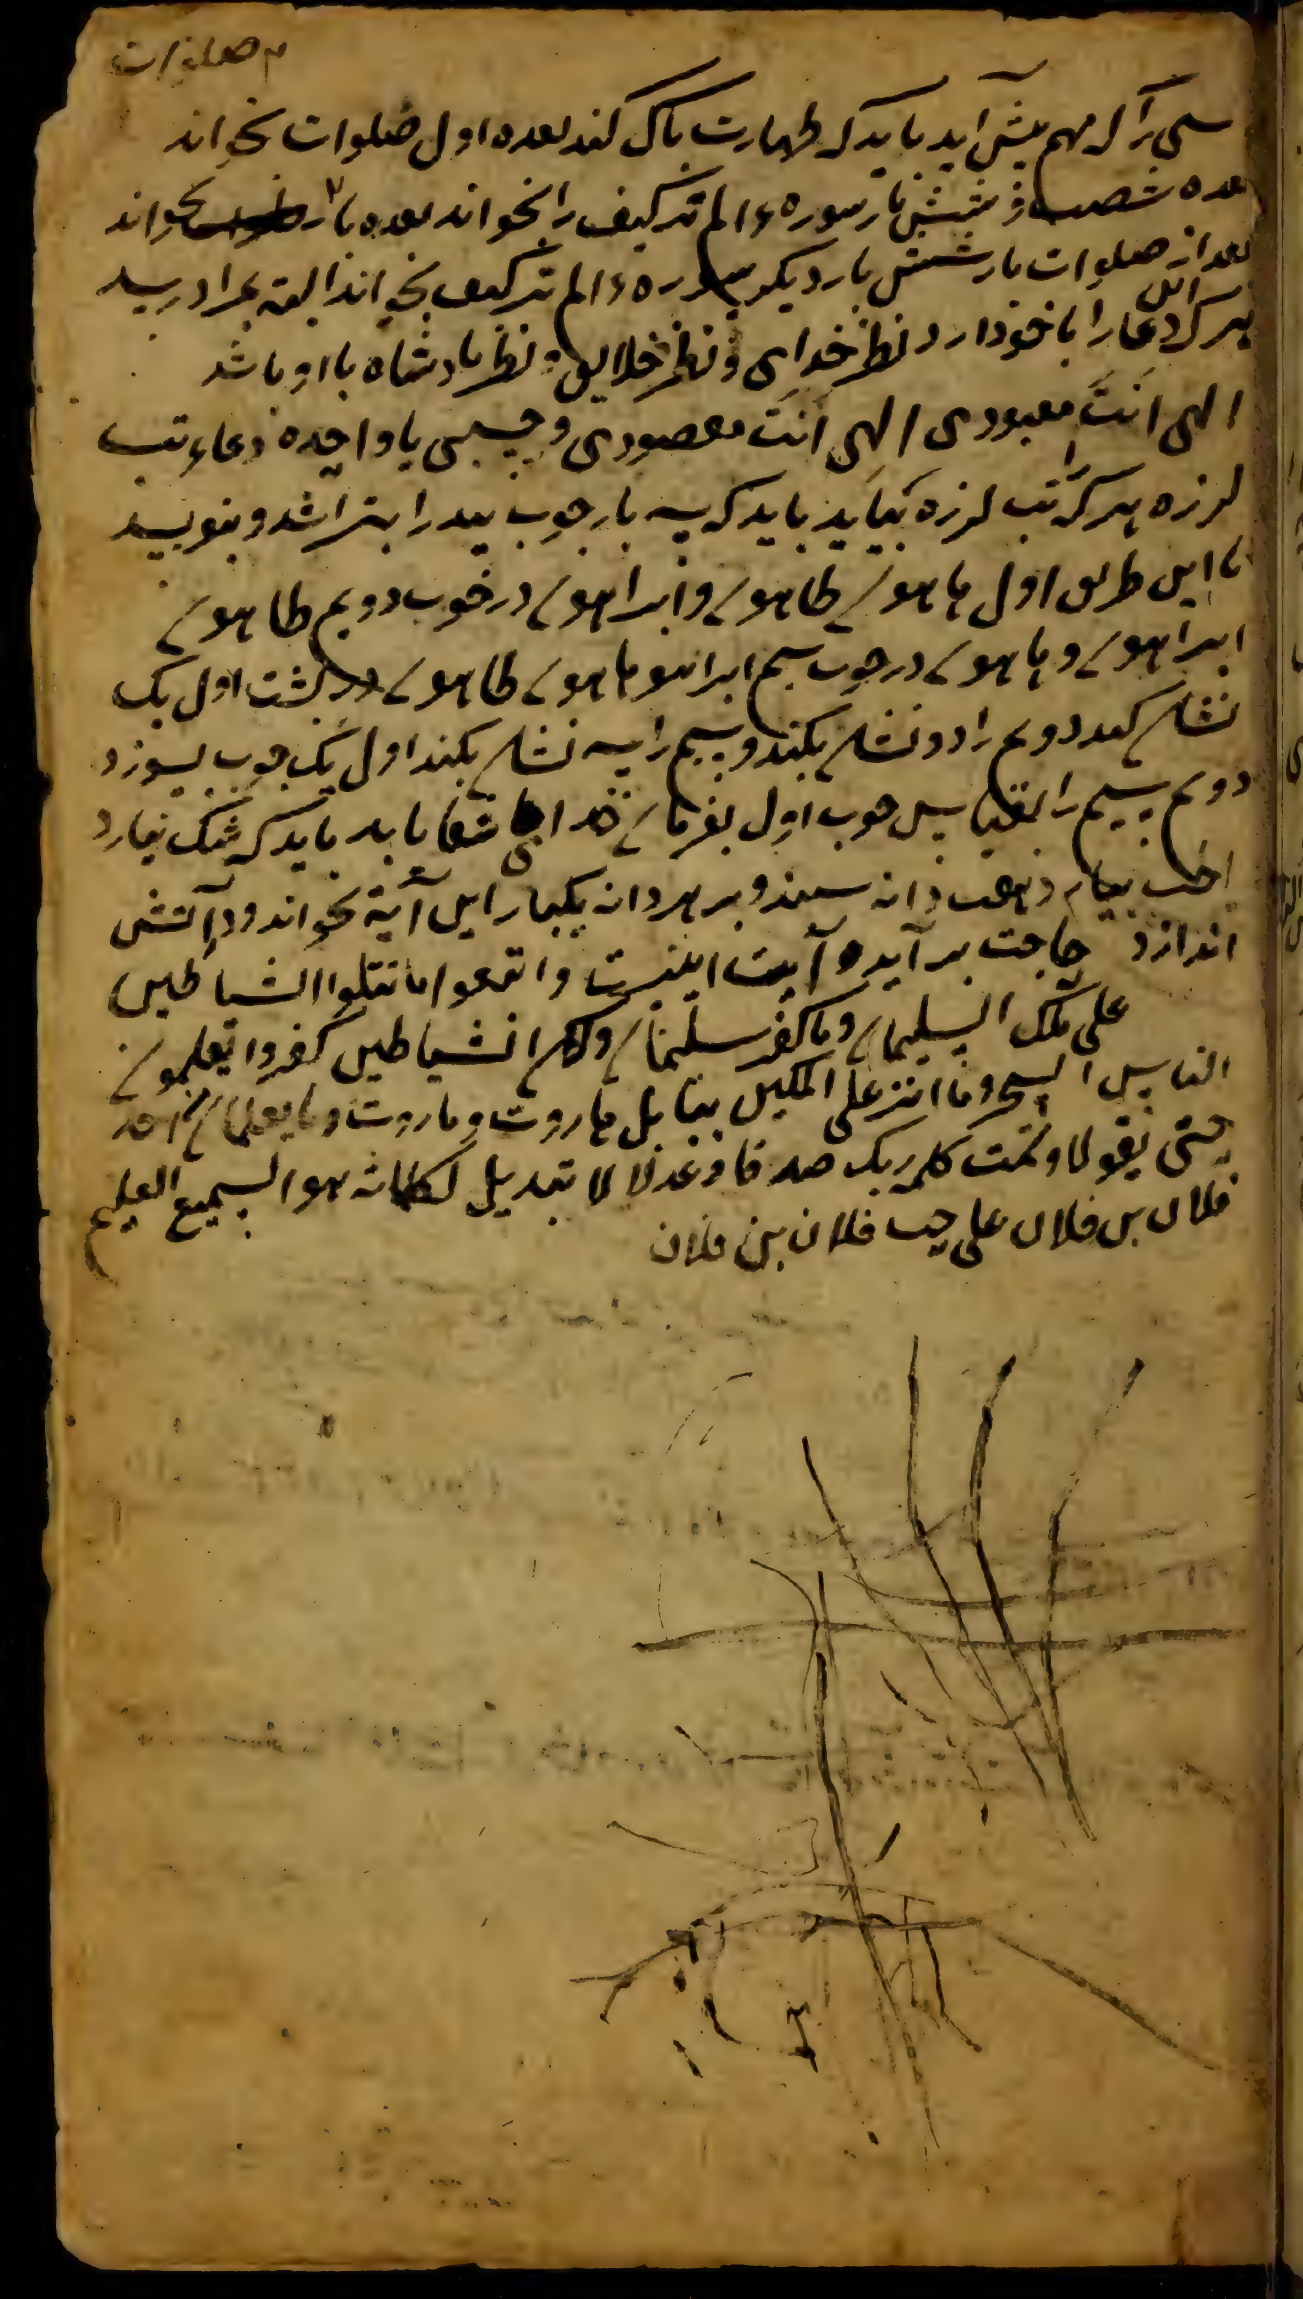 صلوات
را که مهم پیش آید باید که طهارت پاک کند بعده اول صلوات بخواند
بعده شصت و شش بار سوره ء الم ترکیف را بخواند بعده بار بخواند
بعد از صلوات بار شش بار دیگر سوره ء الم ترکیف بخواند البته بمراد رسد
هر که این دعا را با خود دارد نظر خدای و نظر خلایق و نظر پادشاه با او باشد
الهی انت معبودی الهی انت مقصودی و یا واحده دعاء تب
لرزه هر کرا تب لرزه بیاید باید که سه بار چوب بید را بتراشد و بنویسد
با این طریق اول هاهون طاهون و ابراهون در چوب دویم طاهون
ابراهون و هاهون در چوب سیم ابراهو هاهون طاهون در پشت اول یک
نشان کند دویم را دو نشان بکند و سیم را سه نشان بکند اول یک چوب بسوزد
دویم سیم را پس چوب اول بفرمان خدای شفا یابد باید که شک نیارد
بیار دانه سپند و بر هر دانه یکبار این آیة بخواند و در آتش
اندازد حاجت بر آید و آیت اینست واتبعوا ما تتلوا الشیاطین
علی ملک السلیمان وما کفر سلیمان ولکن الشیاطین کفروا یعلمون
الناس السحر وما انزل علی الملکین ببابل هاروت و ماروت وما یعلمان من احد
حتی یقولا وتمت کلمه ربک صدقا وعدلا لا تبدیل لکلماته هو السمیع العلیم
فلان بن فلان علی حب فلان بن فلان